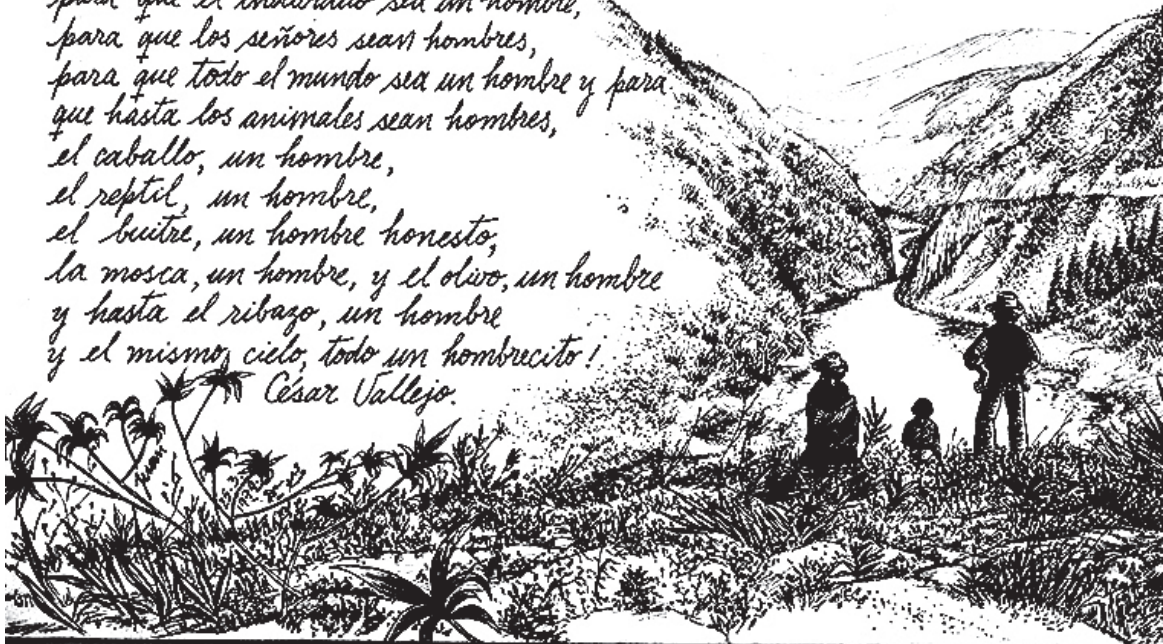 para que el individuo sea un hombre,
para que los señores sean hombres,
para que todo el mundo sea un hombre y para
que hasta los animales sean hombres,
el caballo, un hombre,
el reptil, un hombre,
el buitre, un hombre honesto,
la mosca, un hombre, y el olivo, un hombre
y hasta el ribazo, un hombre
y el mismo cielo, todo un hombrecito!
César Vallejo.